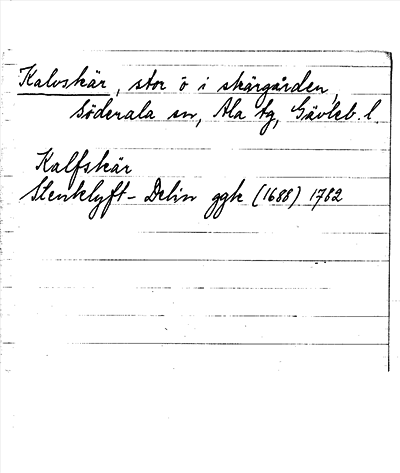 Kalvskär, stor ö i skärgården,
Söderala sn, Ala tg, Gävleb. l.
Kalfskär
Stenklyft - Delin ggk (1688) 1782